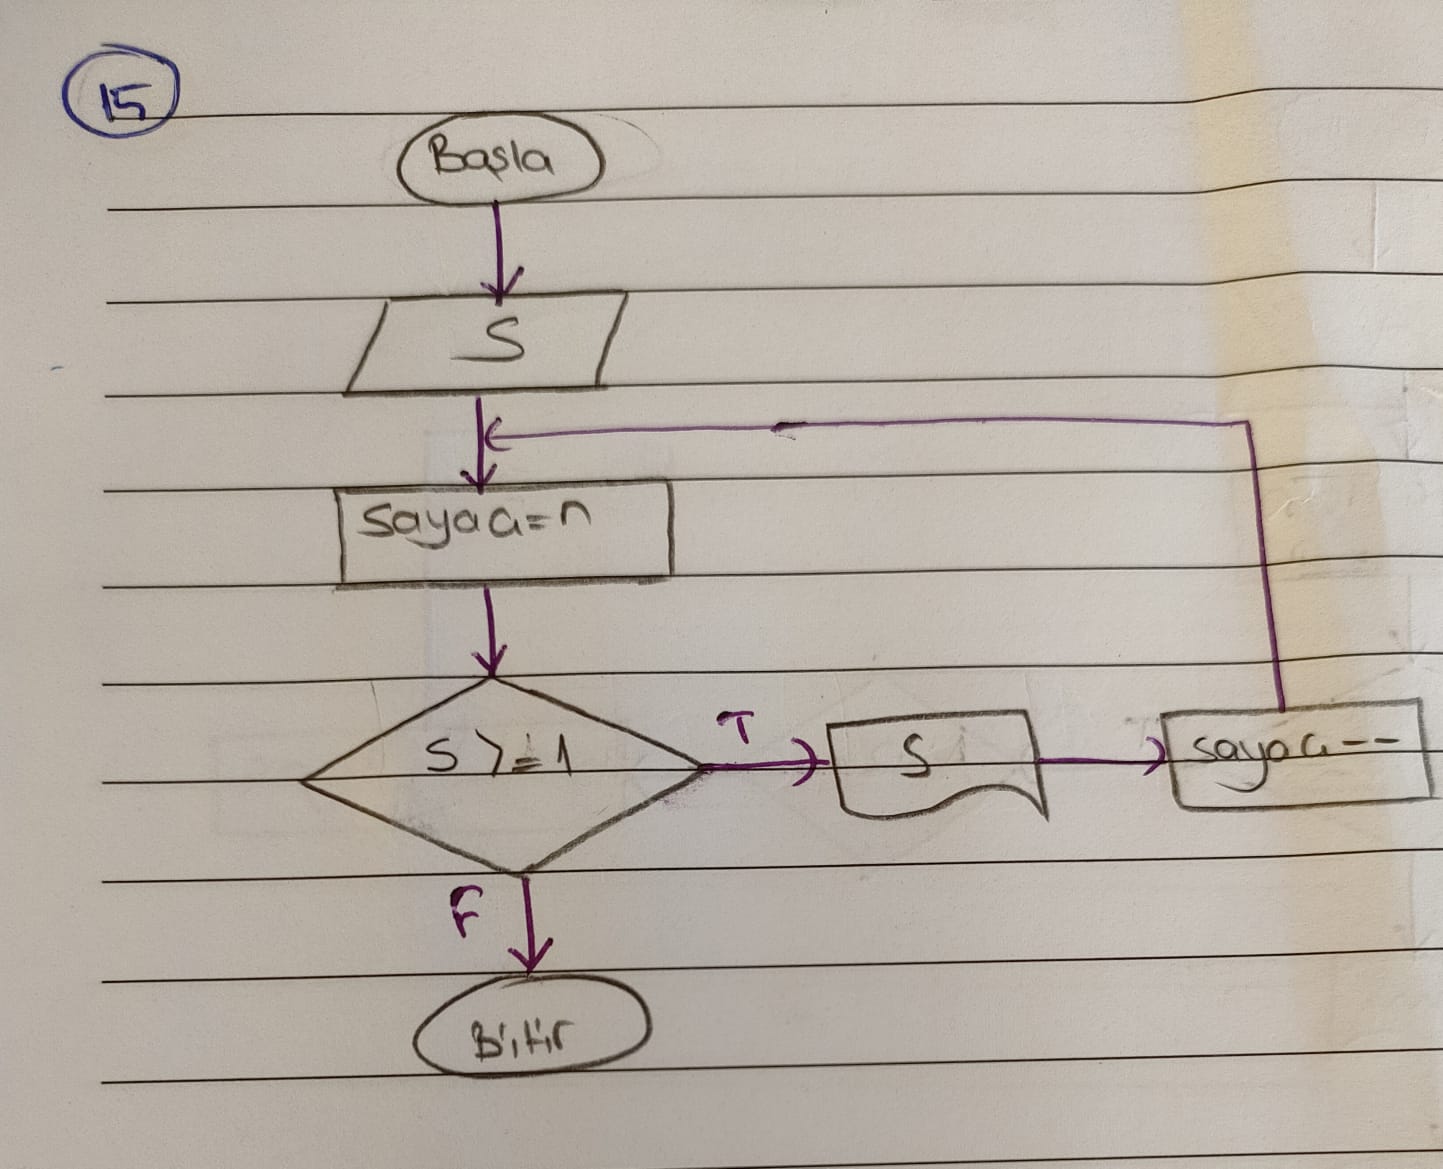 15
Başla
S
Sayaa=n
S >= 1
T
S
sayaa--
F
Bitir